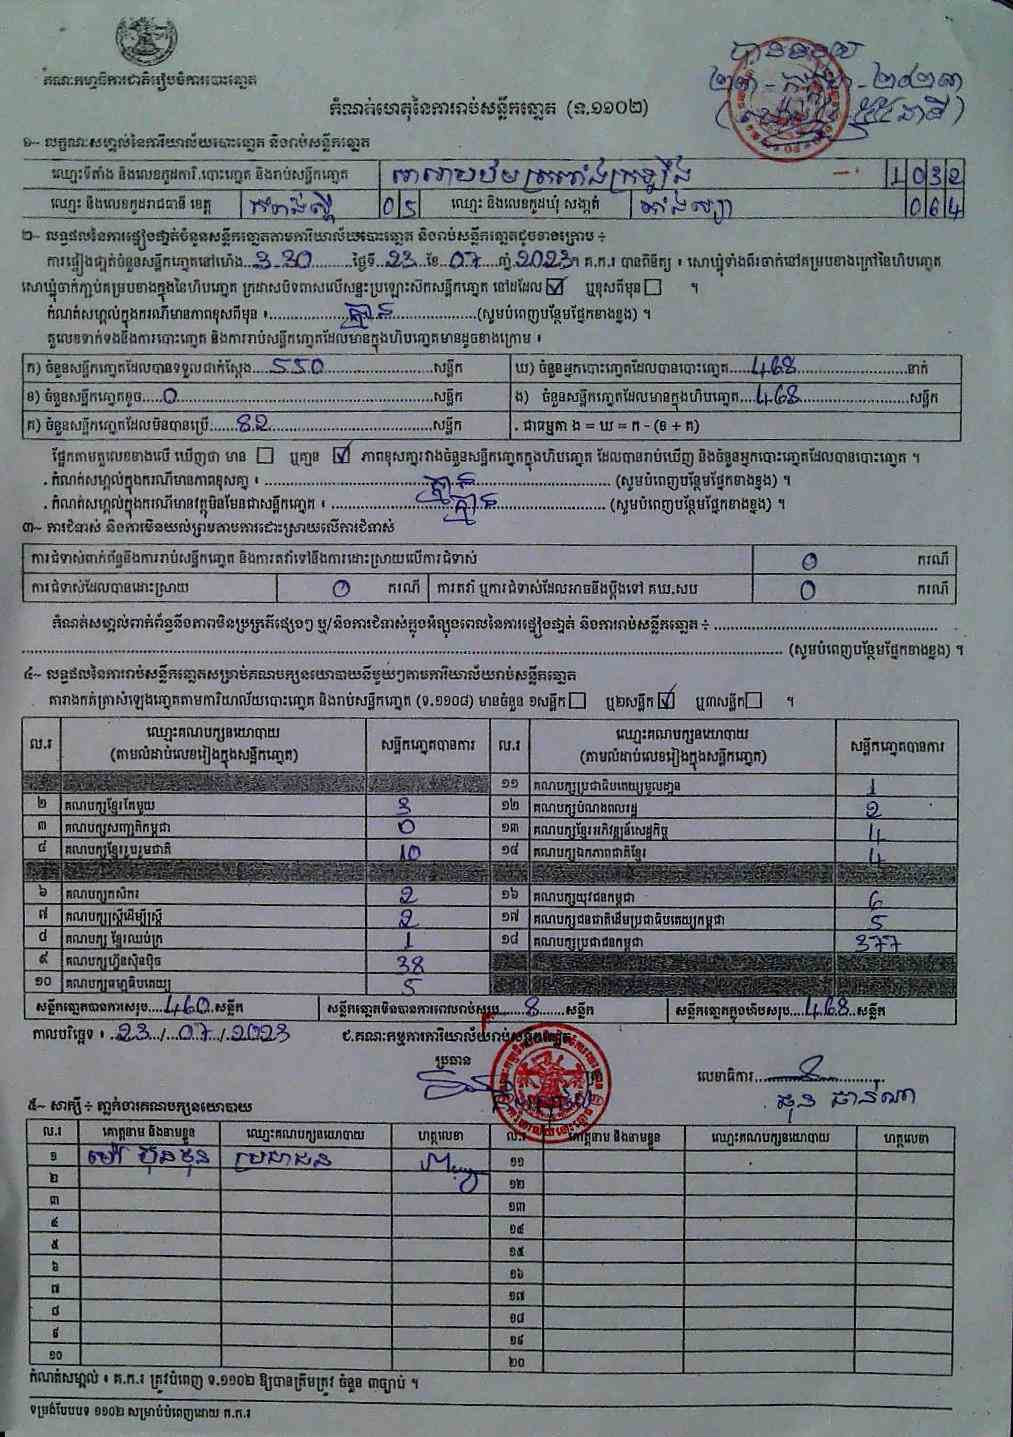 គណៈកម្មាធិការជាតិរៀបចំការបោះឆ្នោត
បានទទួល
២៣-កក្កដា-២០២៣
កំណត់ហេតុនៃការរាប់សន្លឹកឆ្នោត (ទ.១១០២)
១~ លក្ខណៈសម្គាល់នៃការិយាល័យបោះឆ្នោត និងរាប់សន្លឹកឆ្នោត
ឈ្មោះទីតាំង និងលេខកូដការិ.បោះឆ្នោត និងរាប់សន្លឹកឆ្នោត 1032
ឈ្មោះ និងលេខកូដរាជធានី ខេត្ត កំពង់ស្ពឺ 05 ឈ្មោះ និងលេខកូដឃុំ សង្កាត់ 064
២~ លទ្ធផលនៃការផ្ទៀងផ្ទាត់ចំនួនសន្លឹកឆ្នោតតាមការិយាល័យបោះឆ្នោត និងរាប់សន្លឹកឆ្នោតដូចខាងក្រោម ÷
ការផ្ទៀងផ្ទាត់ចំនួនសន្លឹកឆ្នោតនៅម៉ោង 3.30 ថ្ងៃទី 23 ខែ 07 ឆ្នាំ 2023 ។ គ.ក.រ បានពិនិត្យ ៖ សោឃ្លុំទាំងពីរចាក់នៅគម្របខាងក្រៅនៃហិបឆ្នោត
សោឃ្លុំចាក់ភ្ជាប់គម្របខាងក្នុងនៃហិបឆ្នោត ក្រដាសបិទពាសលើសន្ទះប្រឡោះស៊កសន្លឹកឆ្នោត នៅដដែល ☑ ឬខុសពីមុន ☐ ។
កំណត់សម្គាល់ក្នុងករណីមានភាពខុសពីមុន ៖ គ្មាន (សូមបំពេញបន្ថែមផ្នែកខាងខ្នង) ។
តួលេខទាក់ទងនឹងការបោះឆ្នោត និងការរាប់សន្លឹកឆ្នោតដែលមានក្នុងហិបឆ្នោតមានដូចខាងក្រោម ៖
ក) ចំនួនសន្លឹកឆ្នោតដែលបានទទួលជាក់ស្តែង 550 សន្លឹក ឃ) ចំនួនអ្នកបោះឆ្នោតដែលបានបោះឆ្នោត 468 នាក់
ខ) ចំនួនសន្លឹកឆ្នោតខូច 0 សន្លឹក ង) ចំនួនសន្លឹកឆ្នោតដែលមានក្នុងហិបឆ្នោត 468 សន្លឹក
គ) ចំនួនសន្លឹកឆ្នោតដែលមិនបានប្រើ 82 សន្លឹក . ជាធម្មតា ង = ឃ = ក - (ខ + គ)
ផ្អែកតាមតួលេខខាងលើ ឃើញថា មាន ☐ ឬគ្មាន ☑ ភាពខុសគ្នារវាងចំនួនសន្លឹកឆ្នោតក្នុងហិបឆ្នោត ដែលបានរាប់ឃើញ និងចំនួនអ្នកបោះឆ្នោតដែលបានបោះឆ្នោត ។
. កំណត់សម្គាល់ក្នុងករណីមានភាពខុសគ្នា ៖ គ្មាន (សូមបំពេញបន្ថែមផ្នែកខាងខ្នង) ។
. កំណត់សម្គាល់ក្នុងករណីមានវត្ថុមិនមែនជាសន្លឹកឆ្នោត ៖ គ្មាន (សូមបំពេញបន្ថែមផ្នែកខាងខ្នង) ។
៣~ ការជំទាស់ និងការមិនយល់ព្រមតាមការដោះស្រាយលើការជំទាស់
ការជំទាស់ពាក់ព័ន្ធនឹងការរាប់សន្លឹកឆ្នោត និងការតវ៉ាទៅនឹងការដោះស្រាយលើការជំទាស់ 0 ករណី
ការជំទាស់ដែលបានដោះស្រាយ 0 ករណី ការតវ៉ា ឬការជំទាស់ដែលអាចនឹងប្តឹងទៅ គឃ.សប 0 ករណី
កំណត់សម្គាល់ពាក់ព័ន្ធនឹងភាពមិនប្រក្រតីផ្សេងៗ ឬ/និងការជំទាស់ក្នុងអំឡុងពេលនៃការផ្ទៀងផ្ទាត់ និងការរាប់សន្លឹកឆ្នោត ÷
(សូមបំពេញបន្ថែមផ្នែកខាងខ្នង) ។
៤~ លទ្ធផលនៃការរាប់សន្លឹកឆ្នោតសម្រាប់គណបក្សនយោបាយនីមួយៗតាមការិយាល័យរាប់សន្លឹកឆ្នោត
តារាងកត់ត្រាសំឡេងឆ្នោតតាមការិយាល័យបោះឆ្នោត និងរាប់សន្លឹកឆ្នោត (ទ.១១០៨) មានចំនួន ១សន្លឹក ☐ ឬ២សន្លឹក ☑ ឬ៣សន្លឹក ☐ ។
ល.រ ឈ្មោះគណបក្សនយោបាយ (តាមលំដាប់លេខរៀងក្នុងសន្លឹកឆ្នោត) សន្លឹកឆ្នោតបានការ ល.រ ឈ្មោះគណបក្សនយោបាយ (តាមលំដាប់លេខរៀងក្នុងសន្លឹកឆ្នោត) សន្លឹកឆ្នោតបានការ
១១ គណបក្សប្រជាធិបតេយ្យមូលដ្ឋាន 1
២ គណបក្សខ្មែរតែមួយ 3 ១២ គណបក្សបំណងពលរដ្ឋ 2
៣ គណបក្សសញ្ជាតិកម្ពុជា 0 ១៣ គណបក្សខ្មែរអភិវឌ្ឍន៍សេដ្ឋកិច្ច 4
៤ គណបក្សខ្មែររួបរួមជាតិ 10 ១៤ គណបក្សឯកភាពជាតិខ្មែរ 4
៦ គណបក្សកសិករ 2 ១៦ គណបក្សយុវជនកម្ពុជា 6
៧ គណបក្សស្ត្រីដើម្បីស្ត្រី 2 ១៧ គណបក្សជនជាតិដើមប្រជាធិបតេយ្យកម្ពុជា 5
៨ គណបក្ស ខ្មែរឈប់ក្រ 1 ១៨ គណបក្សប្រជាជនកម្ពុជា 377
៩ គណបក្សហ្វ៊ុនស៊ិនប៉ិច 38
១០ គណបក្សធម្មាធិបតេយ្យ 5
សន្លឹកឆ្នោតបានការសរុប 460 សន្លឹក សន្លឹកឆ្នោតមិនបានការពេលរាប់សរុប 8 សន្លឹក សន្លឹកឆ្នោតក្នុងហិបសរុប 468 សន្លឹក
កាលបរិច្ឆេទ ៖ 23/07/2023 ជ.គណៈកម្មការការិយាល័យរាប់សន្លឹកឆ្នោត
ប្រធាន លេខាធិការ
៥~ សាក្សី ÷ ភ្នាក់ងារគណបក្សនយោបាយ
ល.រ គោត្តនាម និងនាមខ្លួន ឈ្មោះគណបក្សនយោបាយ ហត្ថលេខា ល.រ គោត្តនាម និងនាមខ្លួន ឈ្មោះគណបក្សនយោបាយ ហត្ថលេខា
១ ប្រជាជន ១១
២ ១២
៣ ១៣
៤ ១៤
៥ ១៥
៦ ១៦
៧ ១៧
៨ ១៨
៩ ១៩
១០ ២០
កំណត់សម្គាល់ ៖ គ.ក.រ ត្រូវបំពេញ ទ.១១០២ ឱ្យបានត្រឹមត្រូវ ចំនួន ៣ច្បាប់ ។
ទម្រង់បែបបទ ១១០២ សម្រាប់បំពេញដោយ គ.ក.រ